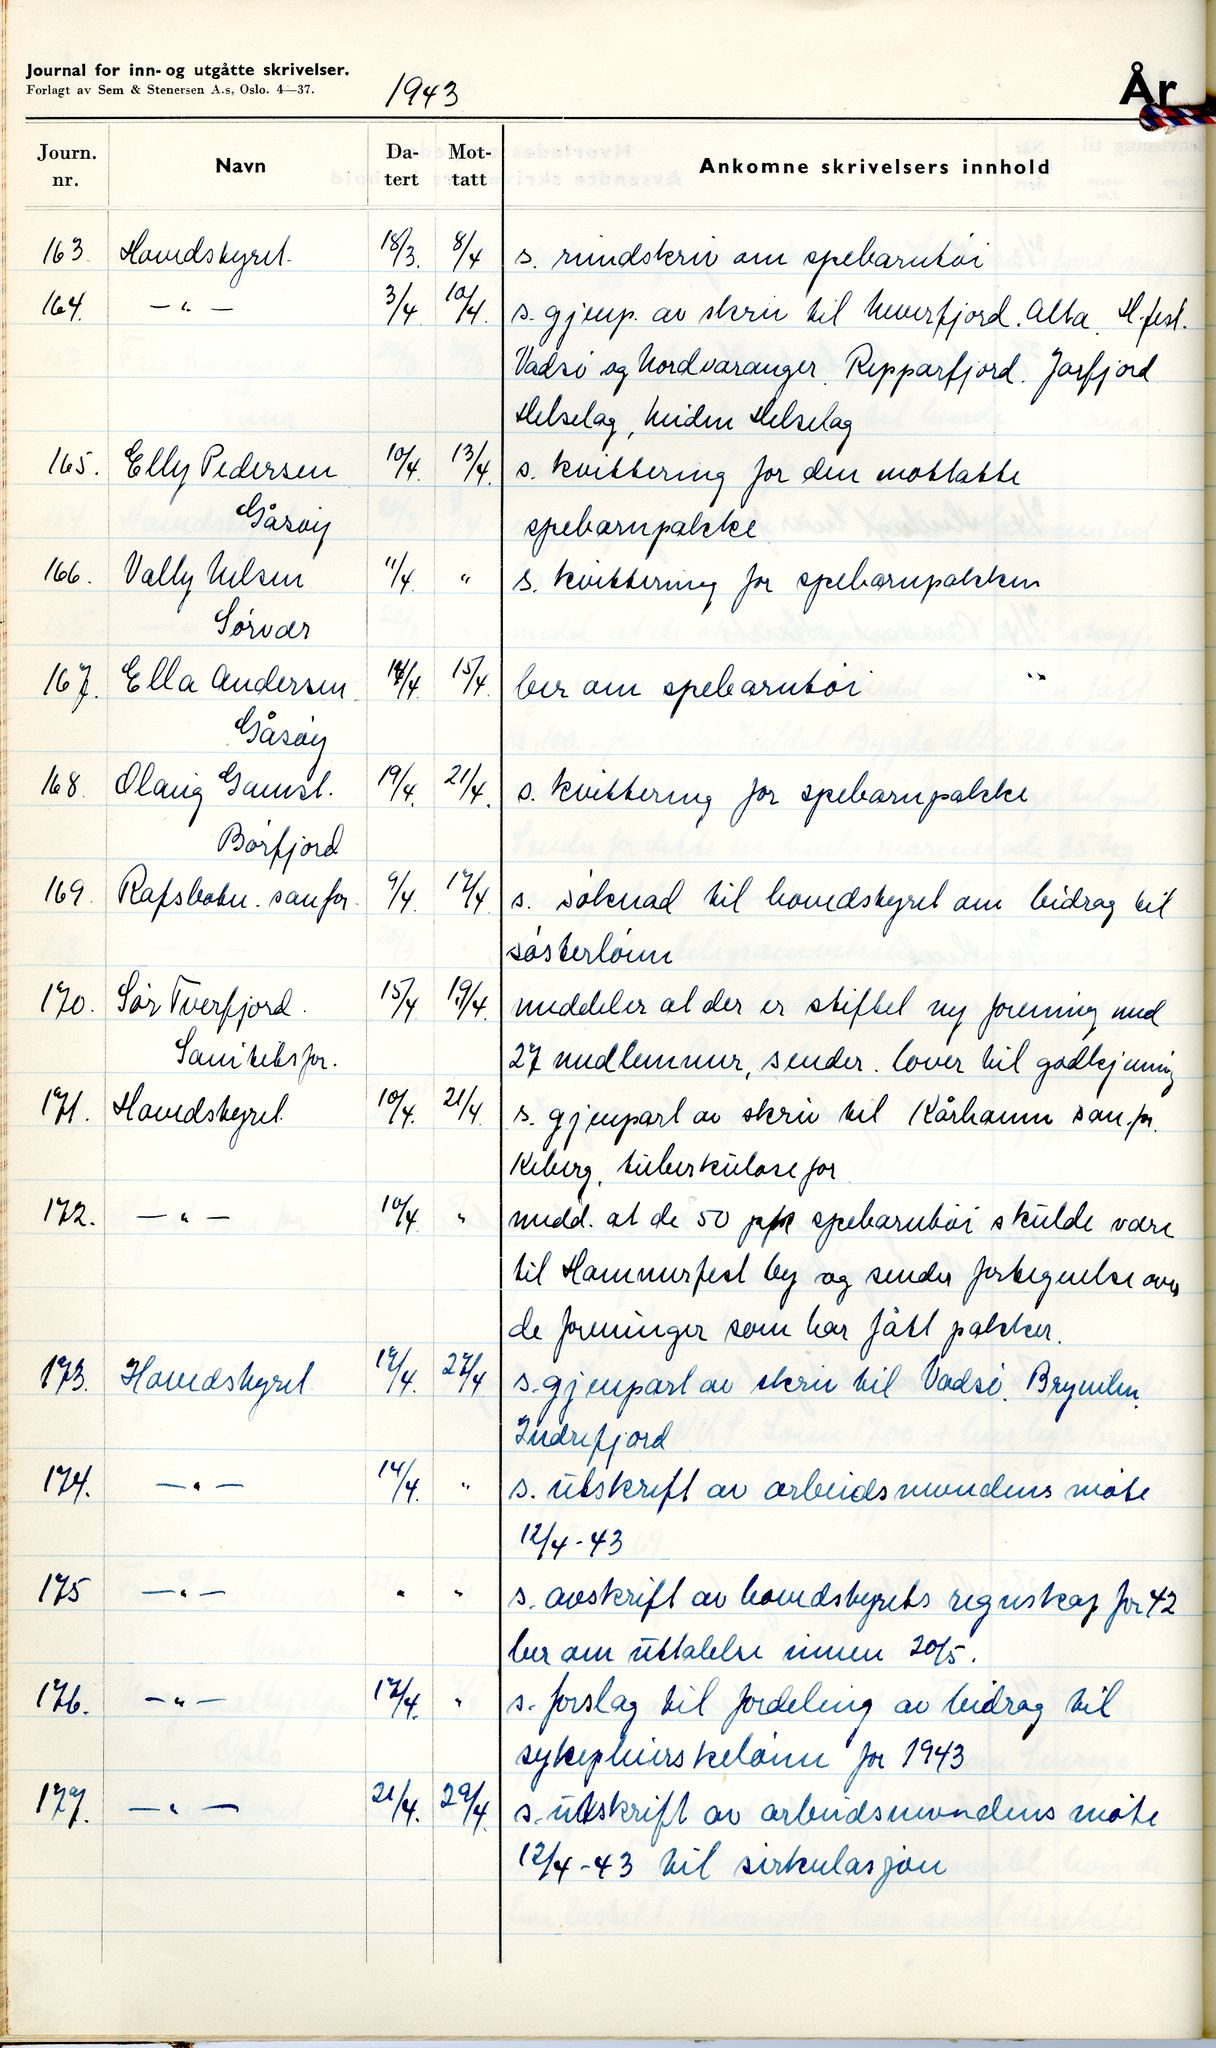 Journal for inn- og utgåtte skrivelser.
Forlagt av Sem & Stenersen A.s, Oslo. 4—37.
1943
År
Journ. nr. Navn Datert Mottatt Ankomne skrivelsers innhold
163. Hovedstyret. 18/3. 8/4 s. rundskriv om spebarntöi
164. —„— 3/4 10/4. s. gjenp. av skriv til Neverfjord. Alta. H.fest.
Vadsö og Nordvaranger. Repparfjord. Jarfjord
Helselag, Neiden Helselag
165. Elly Pedersen 10/4. 13/4. s. kvittering for den mottatte
Gåsøy spebarnpakke
166. Vally Nilsen 11/4 „ s. kvittering for spebarnpakken
Sørvær
167. Ella Andersen 14/4 15/4. ber om spebarntöi „
Gåsøy
168. Olaug Gamst. 19/4. 21/4. s. kvittering for spebarnpakke
Börfjord
169. Rafsbotn. san.for. 9/4. 17/4 s. söknad til hovedstyret om bidrag til
sösterlönn
170. Sör Tverfjord. 15/4 19/4. meddeler at der er stiftet ny forening med
Sanitetsfor. 27 medlemmer, sender. lover til godkjenning
171. Hovedstyret. 10/4. 21/4 s. gjenpart av skriv til Kårhamn san.for.
Kiberg, tuberkulosefor
172. —„— 10/4. „ medd. at de 50 pk spebarntöi skulde være
til Hammerfest by og sender fortegnelse over
de foreninger som har fått pakker.
173. Hovedstyret 17/4. 27/4 s. gjenpart av skriv til Vadsö. Brynilen.
Indrefjord
174. —„— 14/4. „ s. utskrift av arbeidsnevndens möte
12/4-43
175 —„— „ „ s. avskrift av hovedstyrets regnskap for 42
ber om uttalelse innen 20/5.
176. —„— 17/4. „ s. forslag til fordeling av bidrag til
sykepleierskelönn for 1943
177. —„— 21/4. 29/4. s. utskrift av arbeidsnevndens möte
12/4-43 til sirkulasjon